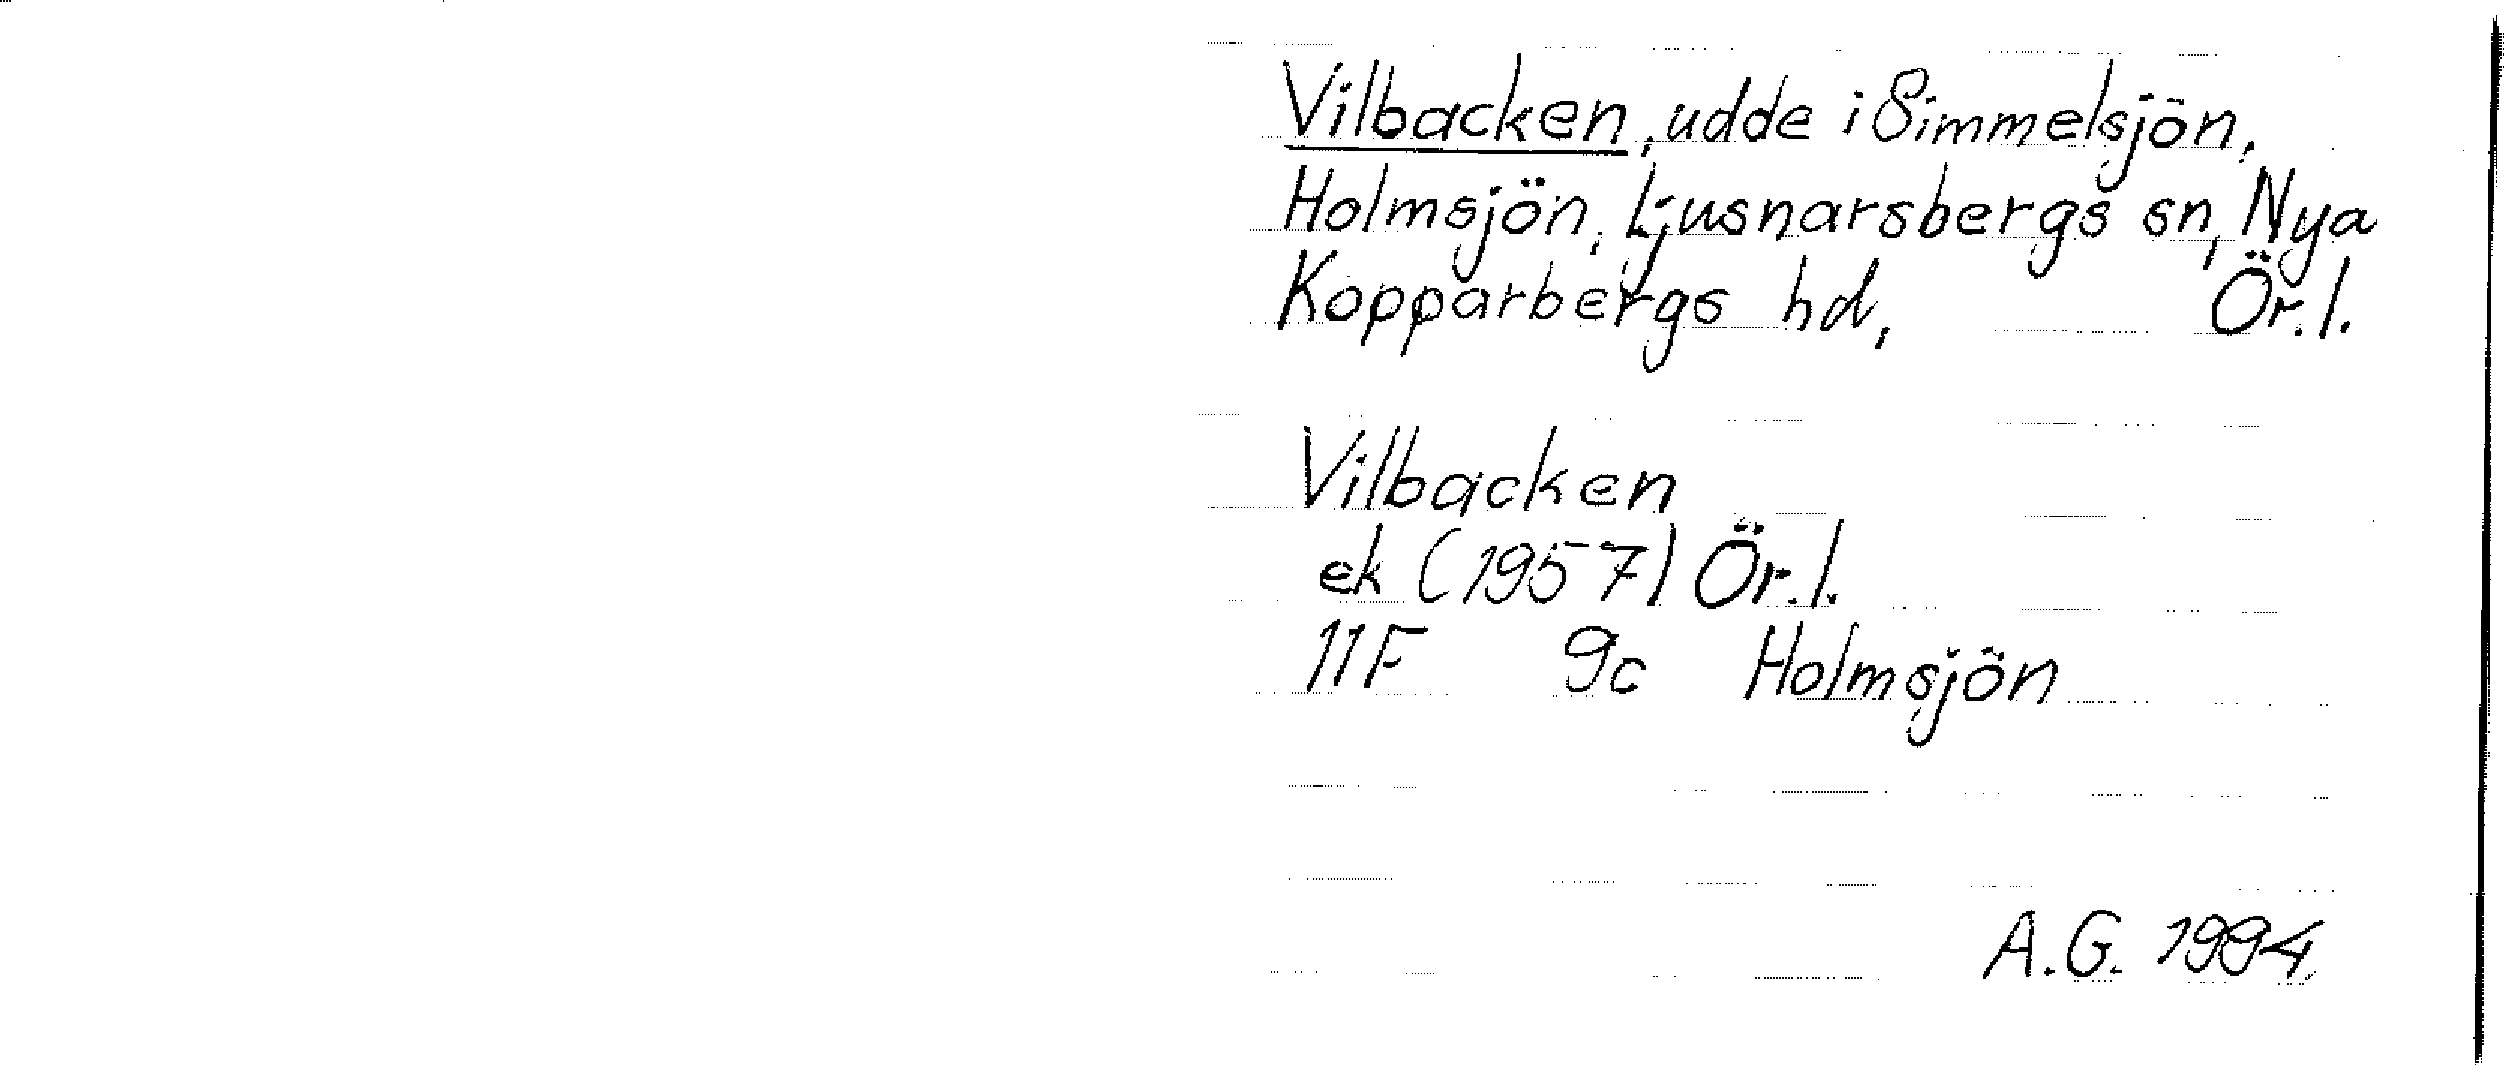 Vilbacken, udde i Simmelsjön,
Holmsjön, Ljusnarsbergs sn, Nya
Kopparbergs hd, Ör.l.
Vilbacken
ek (1957) Ör.l.
11F 9c Holmsjön
A.G. 1994.